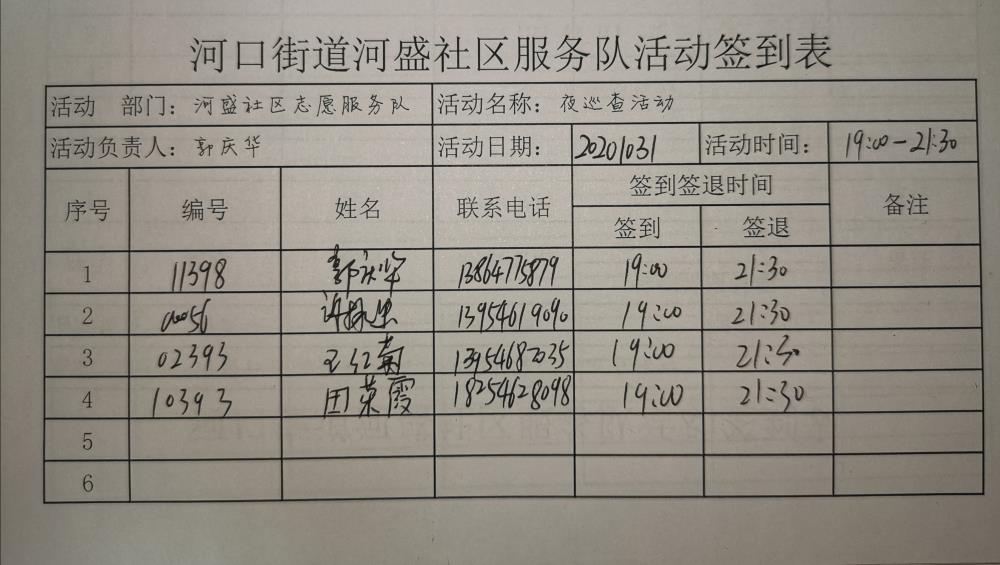 河口街道河盛社区服务队活动签到表
活动 部门：河盛社区志愿服务队 活动名称：夜巡查活动
活动负责人：郭庆华 活动日期： 20201031 活动时间： 19:00-21:30
序号 编号 姓名 联系电话 签到签退时间 备注
签到 签退
1 11398 郭庆华 13864775879 19:00 21:30
2 00056 许 13954619090 19:00 21:30
3 02393 王红菊 13954687035 19:00 21:30
4 10393 田荣霞 18254628098 19:00 21:30
5
6